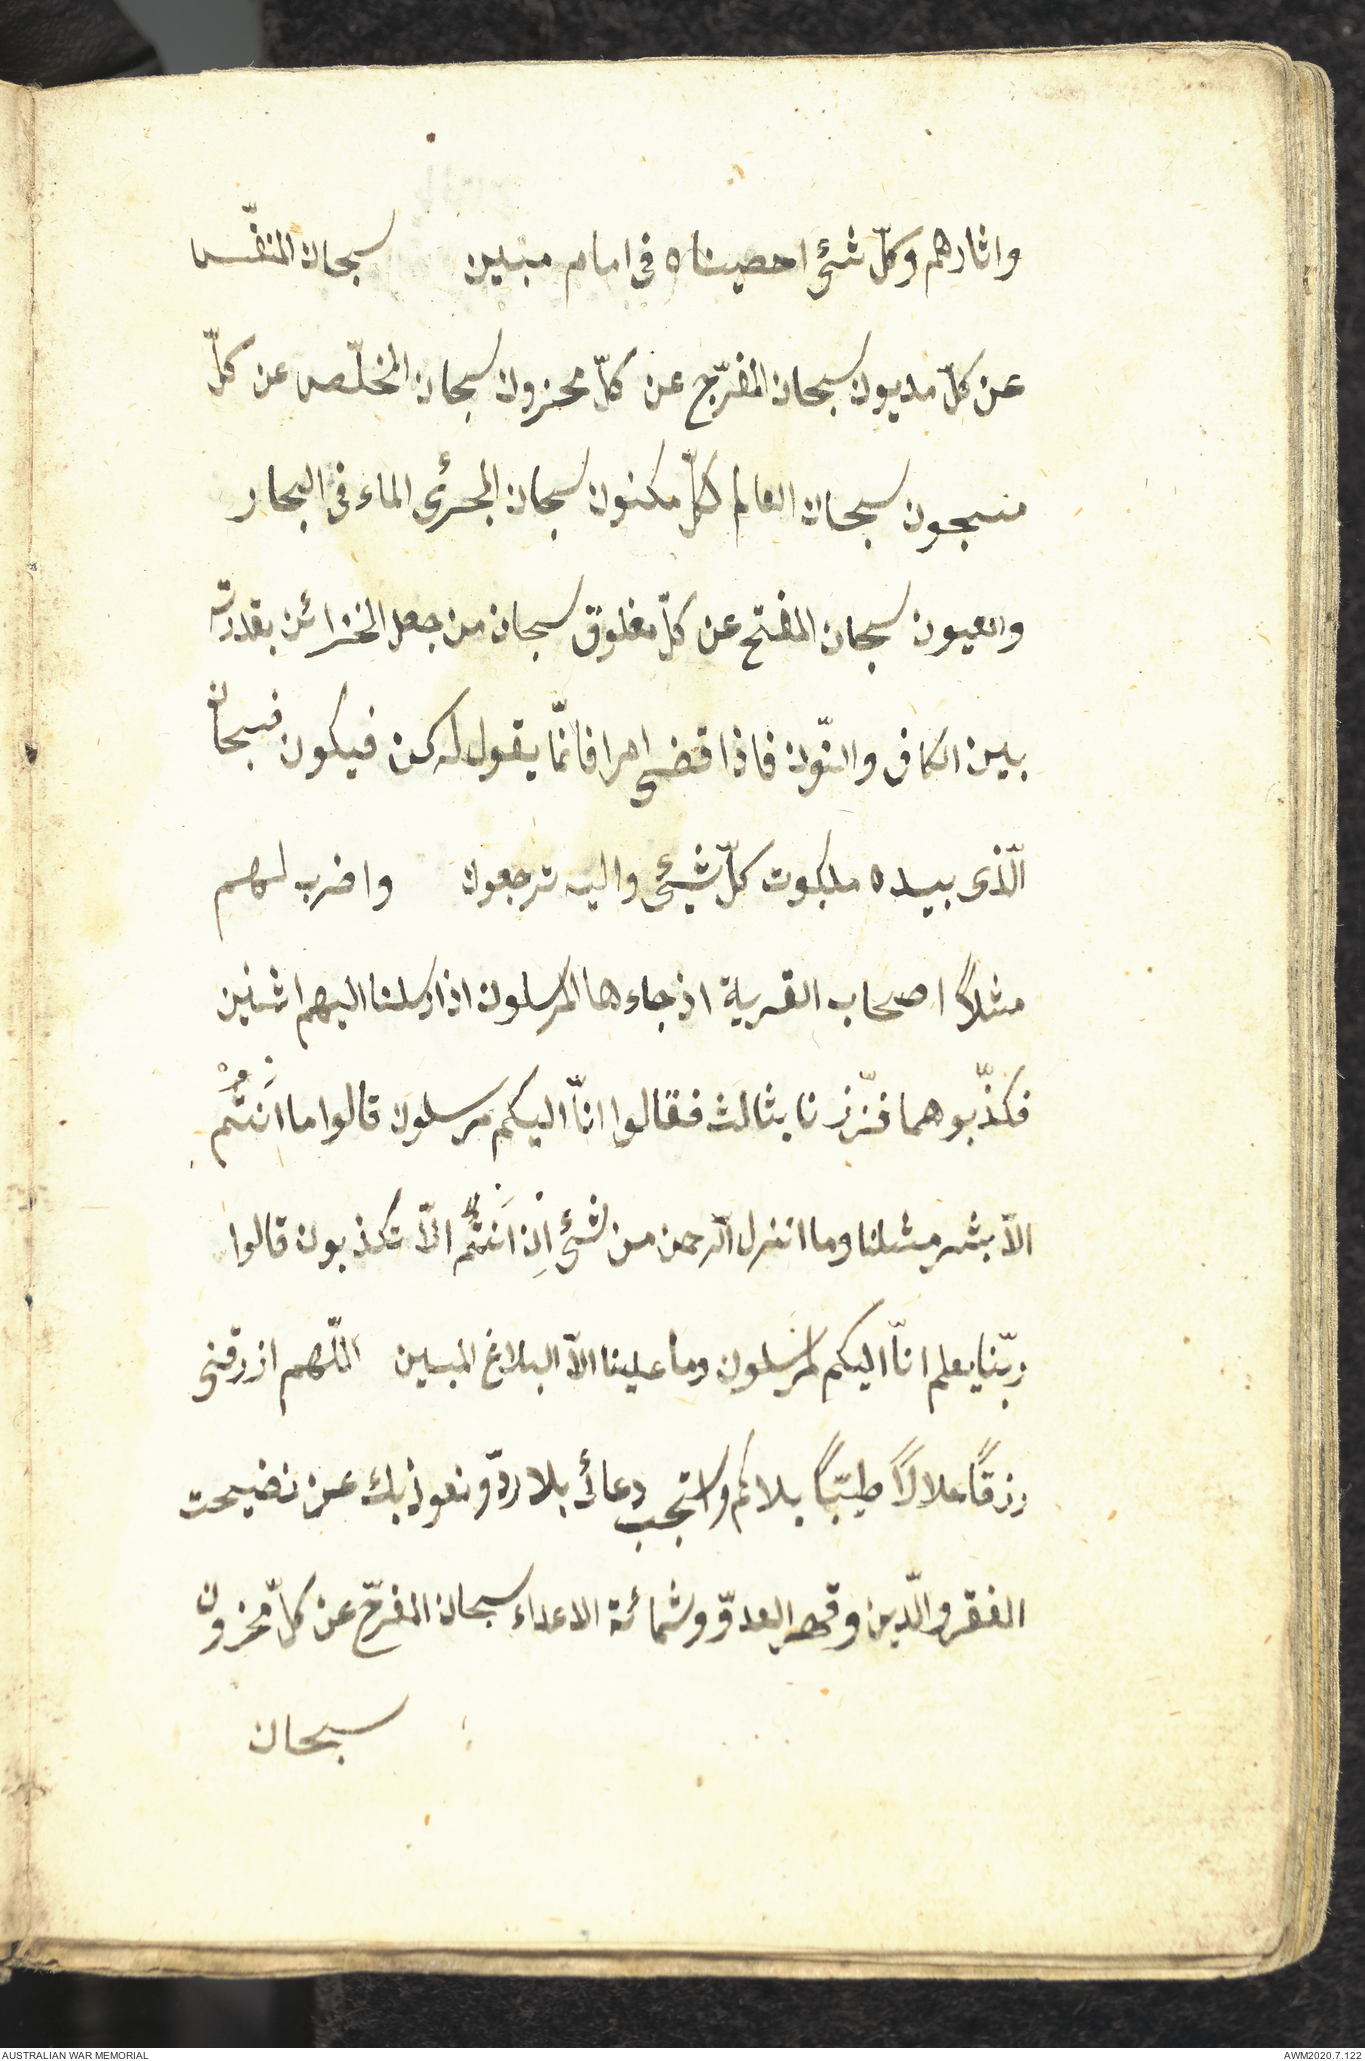 واثارهم وكلّ شئ احصيناه فى امام مبين سبحان المنفّس
عن كلّ مديون سبحان المفرّج عن كلّ محزون سبحان المخلّص عن كلّ
منسجون سبحان العالم كلّ مكنون سبحان المجرئ الماء فى البحار
والعيون سبحان المفتح عن كلّ مغلوق سبحان من جعل الخزائن بقدرته
بين الكاف والنّون فاذا قضى امرا فانّما يقول له كن فيكون فسبحان
الّذى بيده ملكوت كلّ شيئ واليه ترجعون واضرب لهم
مثلاً اصحاب القرية اذ جاءها المرسلون اذ ارسلنا اليهم اثنين
فكذّبوهما فعزّزنا بثالث فقالوا انّا اليكم مرسلون قالوا ما اَنْتُمْ
الاّ بشر مثلنا وما انزل الرّحمن من شئ اِنْ اَنْتُمْ الاّ تكذبون قالوا
ربّنا يعلم انّا اليكم لمرسلون وما علينا الاّ البلاغ المبين اللّهم ارزقنى
رزقاً حلالاً طيّباً بلا كم واستجب دعائى بلا ردّ ونعوذ بك عن نضيحت
الفقر والّدين وقهر العدوّ وشمائة الاعداء سبحان المفرّج عن كلّ محزون
سبحان
AUSTRALIAN WAR MEMORIAL
AWM2020.7.122